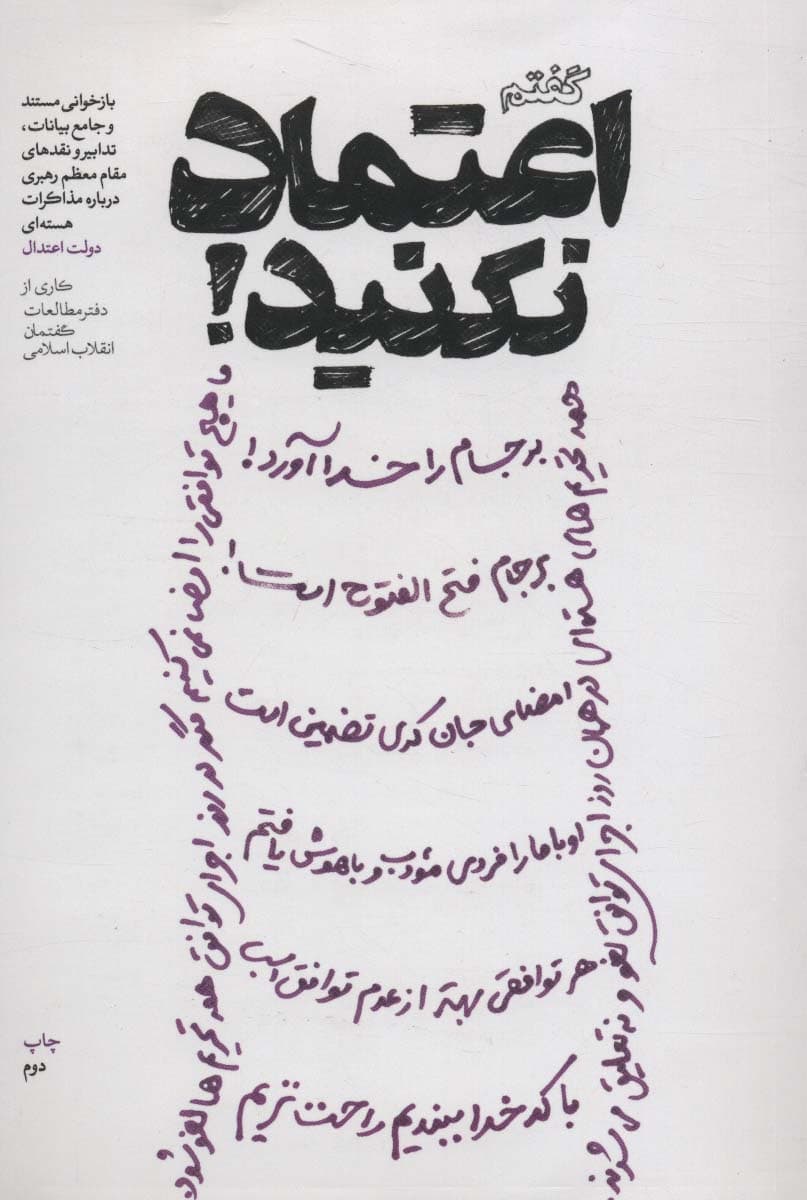 گفتم
اعتماد
نکنید!
بازخوانی مستند
و جامع بیانات،
تدابیر و نقدهای
مقام معظم رهبری
درباره مذاکرات
هسته‌ای
دولت اعتدال
کاری از
دفتر مطالعات
گفتمان
انقلاب اسلامی
همه تحریم های هسته‌ای در همان روز اجرای توافق لغو و نه تعلیق می شوند
برجام را خدا آورد!
برجام فتح الفتوح است!
امضای جان کری تضمین است
اوباما را فردی مؤدب و باهوش یافتم
هر توافقی بهتر از عدم توافق است
با کدخدا ببندیم راحت تریم
ما هیچ توافقی را امضا نمی کنیم مگر در روز اجرای توافق همه تحریم ها لغو شود
چاپ
دوم